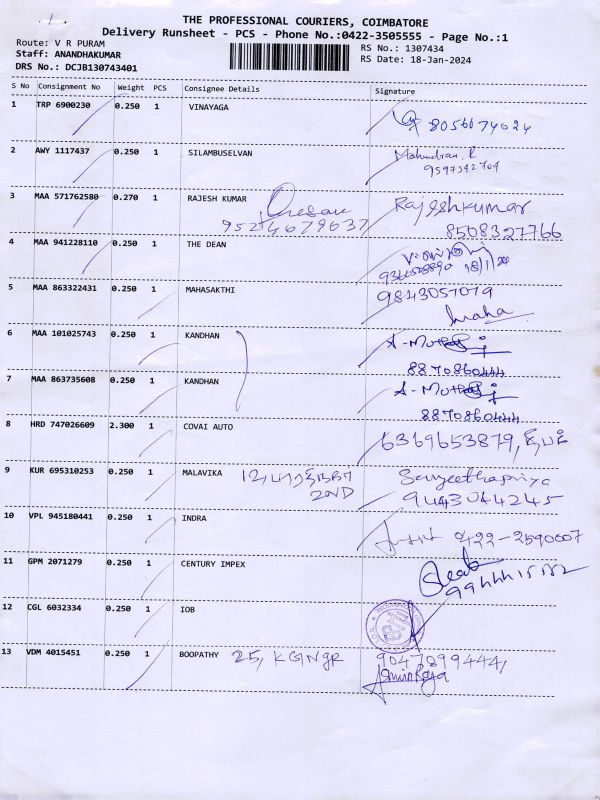 THE PROFESSIONAL COURIERS, COIMBATORE
Delivery Runsheet - PCS - Phone No.:0422-3505555 - Page No.:1
Route: V R PURAM RS No.: 1307434
Staff: ANANDHAKUMAR RS Date: 18-Jan-2024
DRS No.: DCJB130743401
S No Consignment No Weight PCS Consignee Details Signature
1 TRP 6900230 0.250 1 VINAYAGA
8056674024
2 AWY 1117437 0.250 1 SILAMBUSELVAN
9597342704
3 MAA 571762580 0.270 1 RAJESH KUMAR Rajeshkumar
9524679637 8508327766
4 MAA 941228110 0.250 1 THE DEAN
5 MAA 863322431 0.250 1 MAHASAKTHI 9843057079
6 MAA 101025743 0.250 1 KANDHAN
8870860444
7 MAA 863735608 0.250 1 KANDHAN
8870860444
8 HRD 747026609 2.300 1 COVAI AUTO 6369653879,
9 KUR 695310253 0.250 1 MALAVIKA Sangeethapriya
2ND 9443044245
10 VPL 945180441 0.250 1 INDRA 0422-2590007
11 GPM 2071279 0.250 1 CENTURY IMPEX
12 CGL 6032334 0.250 1 IOB
13 VDM 4015451 0.250 1 BOOPATHY 25, KGNgR 9047899444,